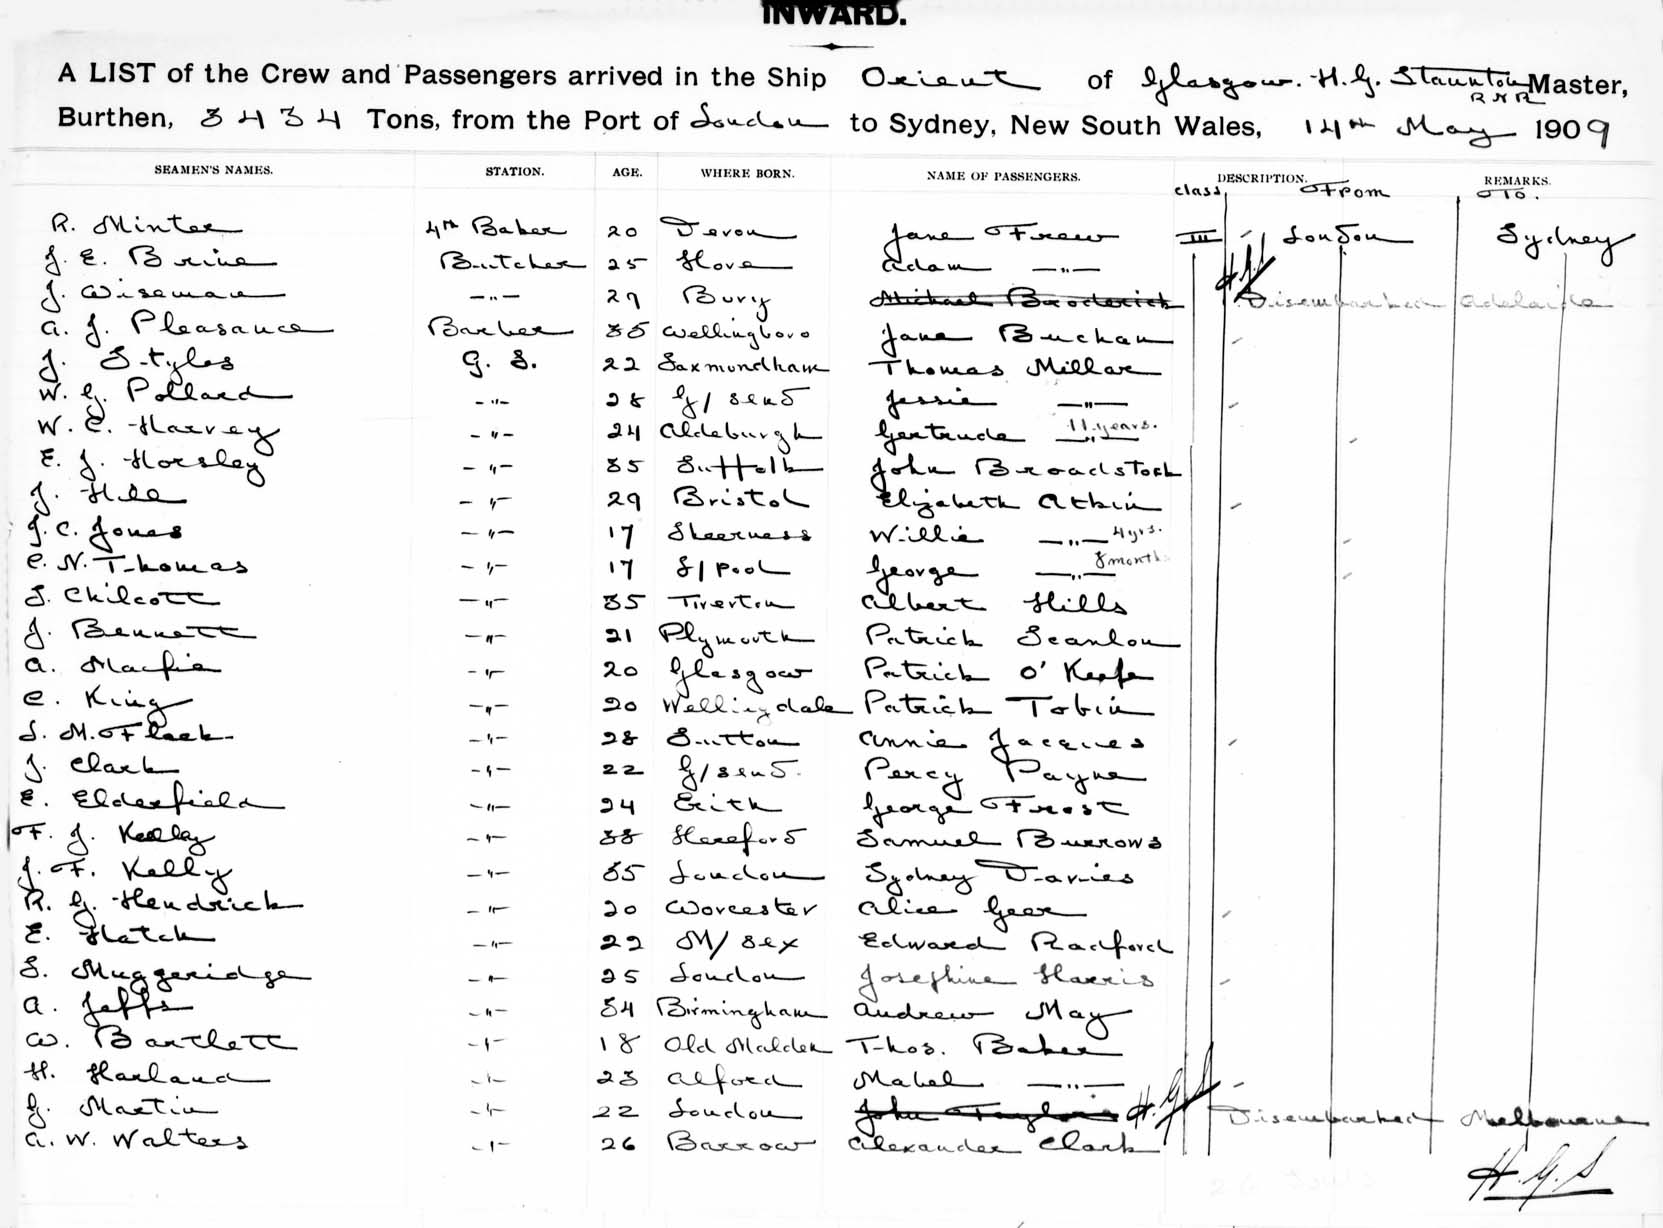 INWARD.
A LIST of the Crew and Passengers arrived in the Ship Orient of Glasgow. H. G. Staunton Master,
RNR
Burthen, 3434 Tons, from the Port of London to Sydney, New South Wales, 14th May 1909
SEAMEN'S NAMES. STATION. AGE. WHERE BORN. NAME OF PASSENGERS. DESCRIPTION. REMARKS.
class From To.
R. Minter 4th Baker 20 Devon Jane Frew III London Sydney
J. E. Brine Butcher 25 Hove Adam —"—
J. Wiseman —"— 29 Bury Michael Broderick Disembarked Adelaide
A. J. Pleasance Barber 35 Wellingboro Jane Buchan
J. Styles G. S. 22 Saxmundham Thomas Millar
W. G. Pollard —"— 28 G/send Jessie —"—
W. C. Harvey —"— 24 Aldeburgh Gertrude —"— 11 years.
E. J. Horsley —"— 35 Suffolk John Broadstock
J. —"— 29 Bristol Elizabeth Atkin
J. C. Jones —"— 17 Sheerness Willie —"— 4 yrs.
C. N. Thomas —"— 17 L/pool George —"— 8 months
S. Chilcott —"— 35 Tiverton Albert Hills
J. Bennett —"— 21 Plymouth Patrick Scanlon
A. Macfie —"— 20 Glasgow Patrick O'Keefe
C. King —"— 20 Wellingdale Patrick Tobin
S. M. Fleck —"— 28 Sutton Annie Jacques
J. Clark —"— 22 G/send. Percy Payne
E. Elderfield —"— 24 Erith George Frost
F. J. Kelley —"— 38 Hereford Samuel Burrows
J. F. Kelly —"— 35 London Sydney Davies
R. G. Hendrick —"— 20 Worcester Alice Geer
E. Hatch —"— 22 M/sex Edward Radford
S. Muggeridge —"— 25 London Josephine Harris
A. Jeffs —"— 34 Birmingham Andrew May
W. Bartlett —"— 18 Old Malden Thos. Baker
H. Harland —"— 23 Alford Mabel —"—
G. Martin —"— 22 London John H.G.S Disembarked Melbourne
A. W. Walters —"— 26 Barrow Alexander Clark
H.G.S